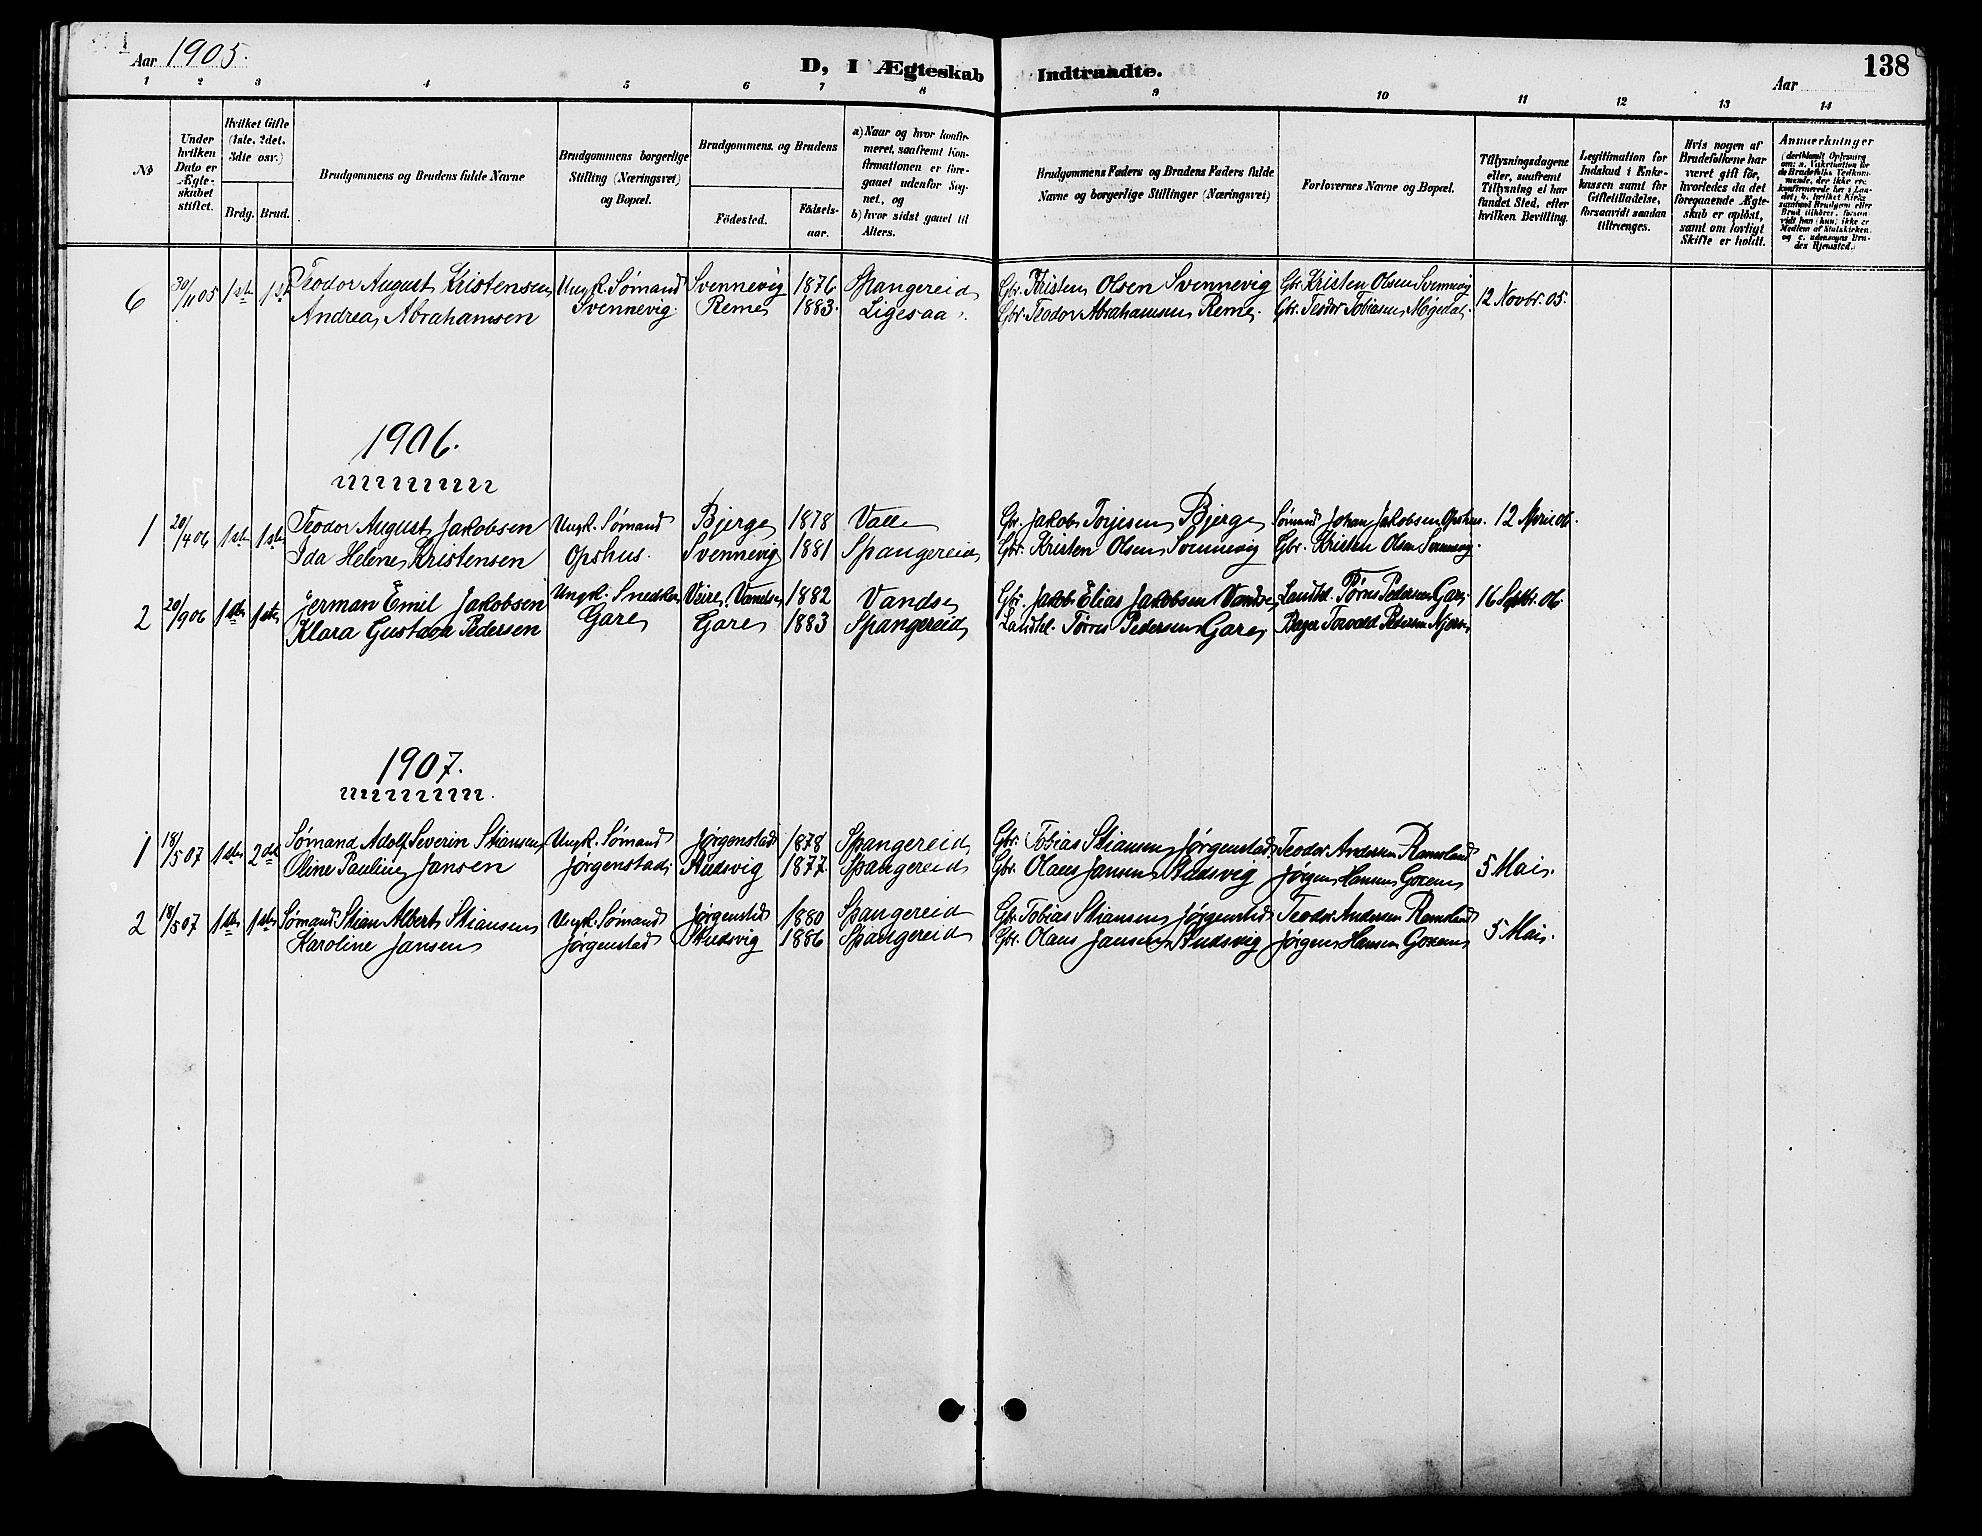 Aar 1905.
D, I Ægteskab Indtraadte.
Aar
138
1 2 3 4 5 6 7 8 9 10 11 12 13 14
No
Under hvilken Dato er Ægteskabet stiftet.
Hvilket Gifte (1ste, 2det, 3die osv.)
Brdg. Brud.
Brudgommens og Brudens fulde Navne
Brudgommens borgerlige Stilling (Næringsvei) og Bopæl.
Brudgommens og Brudens
Födested.
Födselsaar.
a) Naar og hvor konfirmeret, saafremt Konfirmationen er foregaaet udenfor Sognet, og
b) hvor sidst gaaet til Alters.
Brudgommens Faders og Brudens Faders fulde Navne og borgerlige Stillinger (Næringsvei)
Forlovernes Navne og Bopæl.
Tillysningsdagene eller, saafremt Tillysning ei har fundet Sted, efter hvilken Bevilling.
Legitimation for Indskud i Enkekassen samt for Giftetilladelse, forsaavidt saadan tiltrænges.
Hvis nogen af Brudefolkene har været gift för, hvorledes da det foregaaende Ægteskab er oplöst, samt om lovligt Skifte er holdt.
Anmærkninger
6 30/11 05 1ste 1ste Teodor August Kristensen Ungk. Sømand Svennevig 1876 Spangereid Gbr. Kristen Olsen Svennevig Gbr. Kristen Olsen Svennevig 12 Novbr. 05.
Andrea Abrahamsen Svennevig. Reme 1883. Ligesaa. Gbr. Teodor Abrahamsen Reme. Gbr. Teodor Tobiasen Møgedal.
1906.
1 20/4 06 1ste 1ste Teodor August Jakobsen Ungk. Sømand Bjerge 1878 Valle Gbr. Jakob Torjesen Bjerge Sømand Johan Jakobsen Opshus. 12 April 06.
Ida Helene Kristensen Opshus. Svennevig 1881 Spangereid Gbr. Kristen Olsen Svennevig Gbr. Kristen Olsen Svennevig.
2 20/9 06 1ste 1ste Jerman Emil Jakobsen Ungk. Snedker Veire, Vandse 1882 Vandse Gbr. Jakob Elias Jakobsen Vandse Landhl. Tørres Pedersen Gare 16 Septbr. 06.
Klara Gustava Pedersen Gare Gare 1883 Spangereid Landhl. Tørres Pedersen Gare Torvald Pedersen
1907.
1 18/5 07 1ste 2det Sømand Adolf Severin Stiansen Ungk. Sømand Jørgenstad 1878 Spangereid Gbr. Tobias Stiansen Jørgenstad Teodor Andersen Ramsland 5 Mai.
Oline Pauline Jansen Jørgenstad Studsvig 1877. Spangereid Gbr. Olaus Jansen Studsvig Jørgen Hansen
2 18/5 07 1ste 1ste Sømand. Stian Albert Stiansen Ungk. Sømand Jørgenstad 1880 Spangereid Gbr. Tobias Stiansen Jørgenstad Teodor Andersen Ramsland 5 Mai.
Karoline Jansen Jørgenstad Studsvig 1886 Spangereid Gbr. Olaus Jansen Studsvig Jørgen Hansen